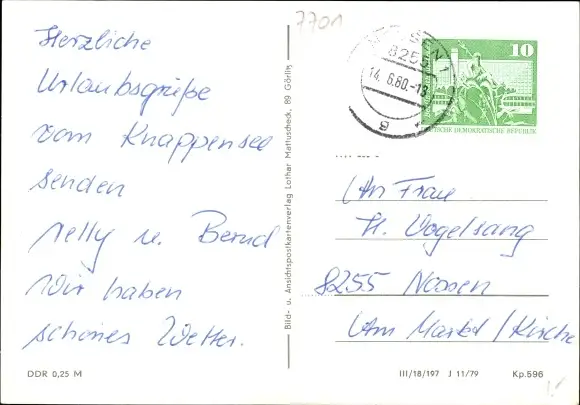 7701
Herzliche
Urlaubsgrüße
vom Knappensee
senden
Nelly u. Bernd
Wir haben
schönes Wetter.
DDR 0,25 M
Bild- u. Ansichtspostkartenverlag Lothar Mattuscheck, 89 Görlitz
NOSSEN 1
8255
14.6.80.-13
a
10
DEUTSCHE DEMOKRATISCHE REPUBLIK
An Frau
H. Vogelsang
8255 Nossen
Am Markt/Kirche
III/18/197 J 11/79 Kp.596